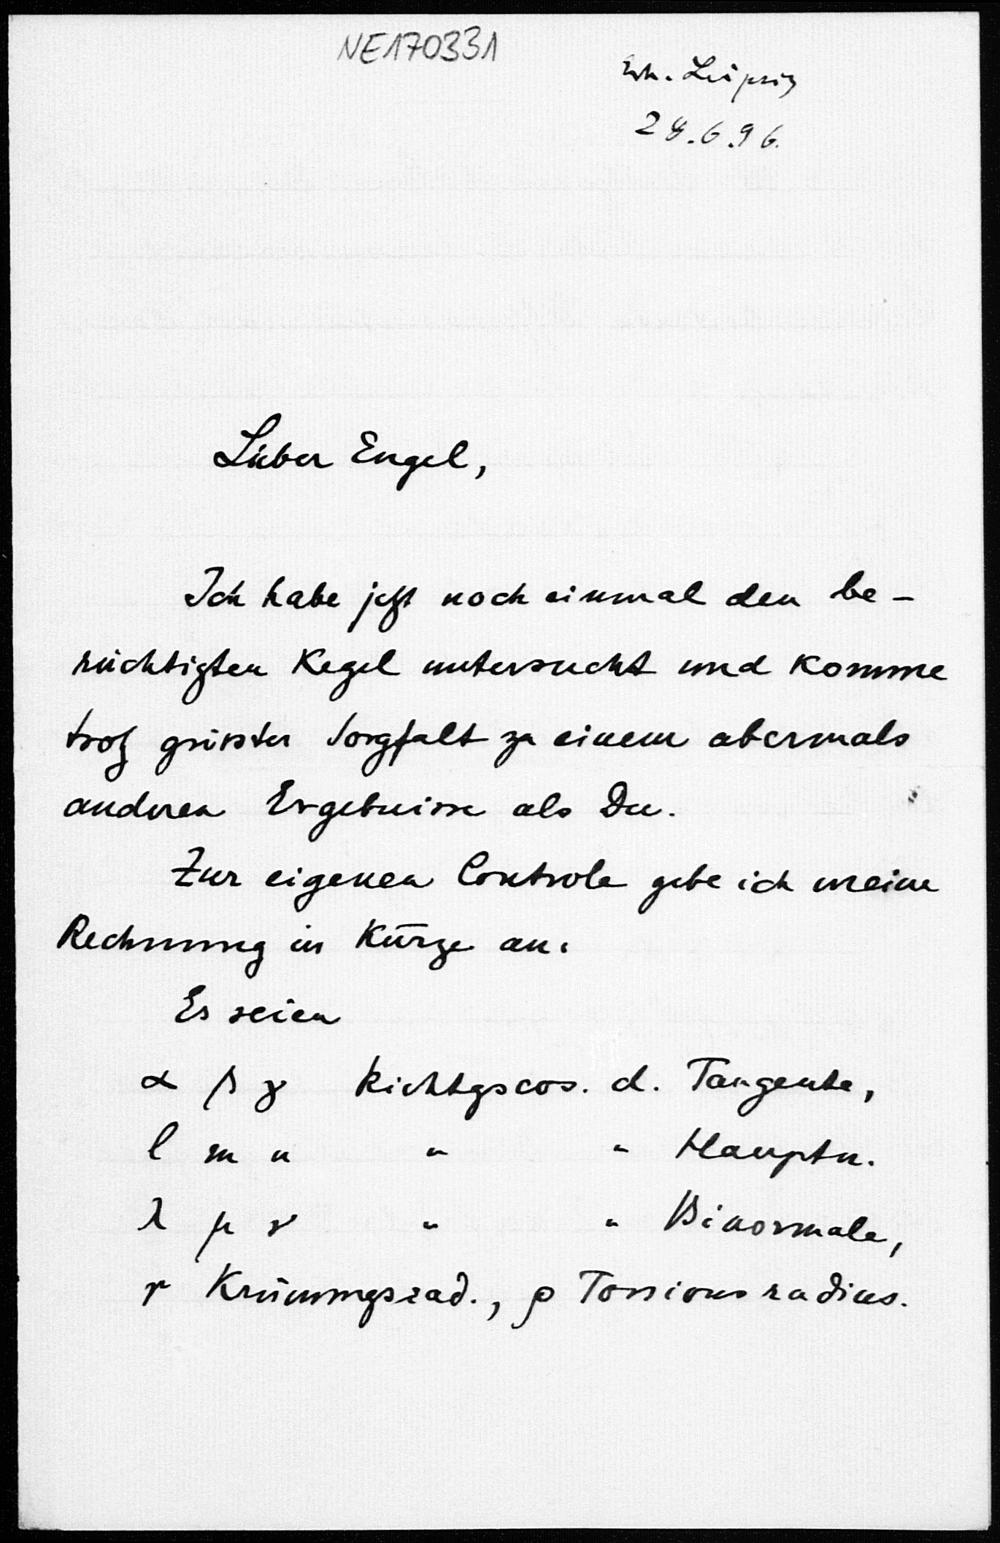 NE170331
Leipzig
28.6.96.
Lieber Engel,
Ich habe jetzt noch einmal den be-
rüchtigten Kegel untersucht und komme
trotz grösster Sorgfalt zu einem abermals
anderen Ergebnisse als Du.
Zur eigenen Controle gebe ich meine
Rechnung in Kürze an:
Es seien
α β γ Richtgscos. d. Tangente,
l m n " " Hauptn.
λ μ ν " " Binormale,
r Krümmungsrad., ρ Torsionsradius.